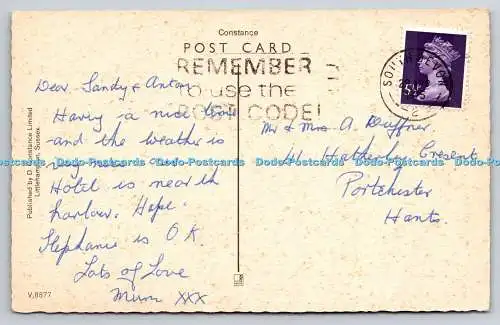 Constance
POST CARD
REMEMBER
to use the
POST CODE!
5½P
Dear Sandy & Antony
Having a nice time
and the weather is
very nice
Hotel is near the
harbour. Hope
Stephanie is O.K.
Lots of Love
Mum xxx
Mr & Mrs A. Duffner
41, Hatherley Crescent
Portchester
Hants.
Published by D. Constance Limited
Littlehampton, Sussex.
V.8877
Dodo-Postcards Dodo-Postcards Dodo-Postcards Dodo-Postcards Dodo-Postcards Dodo-Postcards